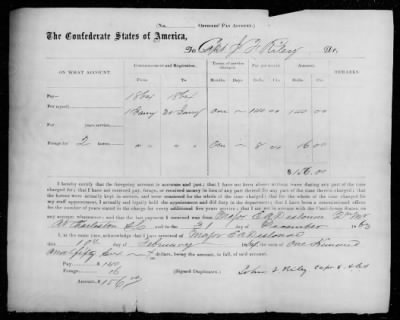 (No. OFFICERS' PAY ACCOUNT.)
The Confederate States of America,
To Capt J. F. Riley Dr.
ON WHAT ACCOUNT. Commencement and Expiration. Term of service charged. Pay per month. Amount. REMARKS.
From To Months Days Dolls. Cts. Dolls. Cts.
Pay— 1864 1864
For myself, 31 Jany one 140 00 140 00
years service,
Forage for 2 horses, " " One 8 00 16 00
$ 156.00
I hereby certify that the foregoing account is accurate and just; that I have not been absent without leave during any part of the time
charged for; that I have not received pay, forage, or received money in lieu of any part thereof for any part of the time therein charged; that
the horses were actually kept in service, and were mustered for the whole of the time charged; that for the whole of the time I charged for
my staff appointment, I actually and legally held the appointment and did duty in the department; that I have been a commissioned officer
for the number of years stated in the charge for every additional five years service; that I am not in arrears with the Confederate States, on
any account whatsoever; and that the last payment I received was from Major
At Charleston S.C. and to the 31 day of December 1863
I, at the same time, acknowledge that I have received of Major
this 1st day of February the sum of One Hundred
and fifty six dollars, being the amount, in full, of said account.
Pay, $ 140
Forage, 16
(Signed Duplicates.) John F Riley Capt
Amount, $ 156.00